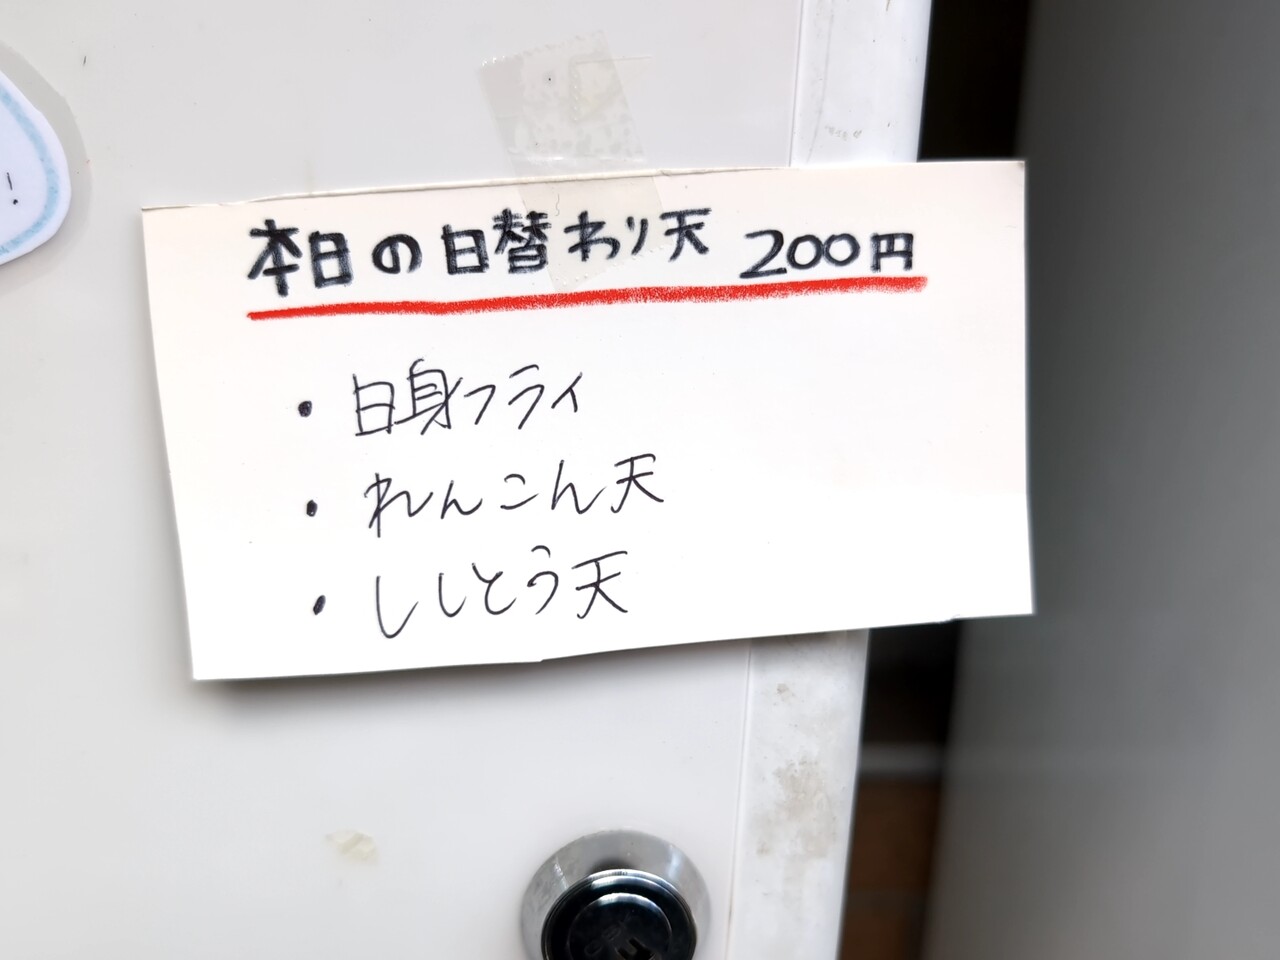 本日の日替わり天 200円
・白身フライ
・れんこん天
・ししとう天
!